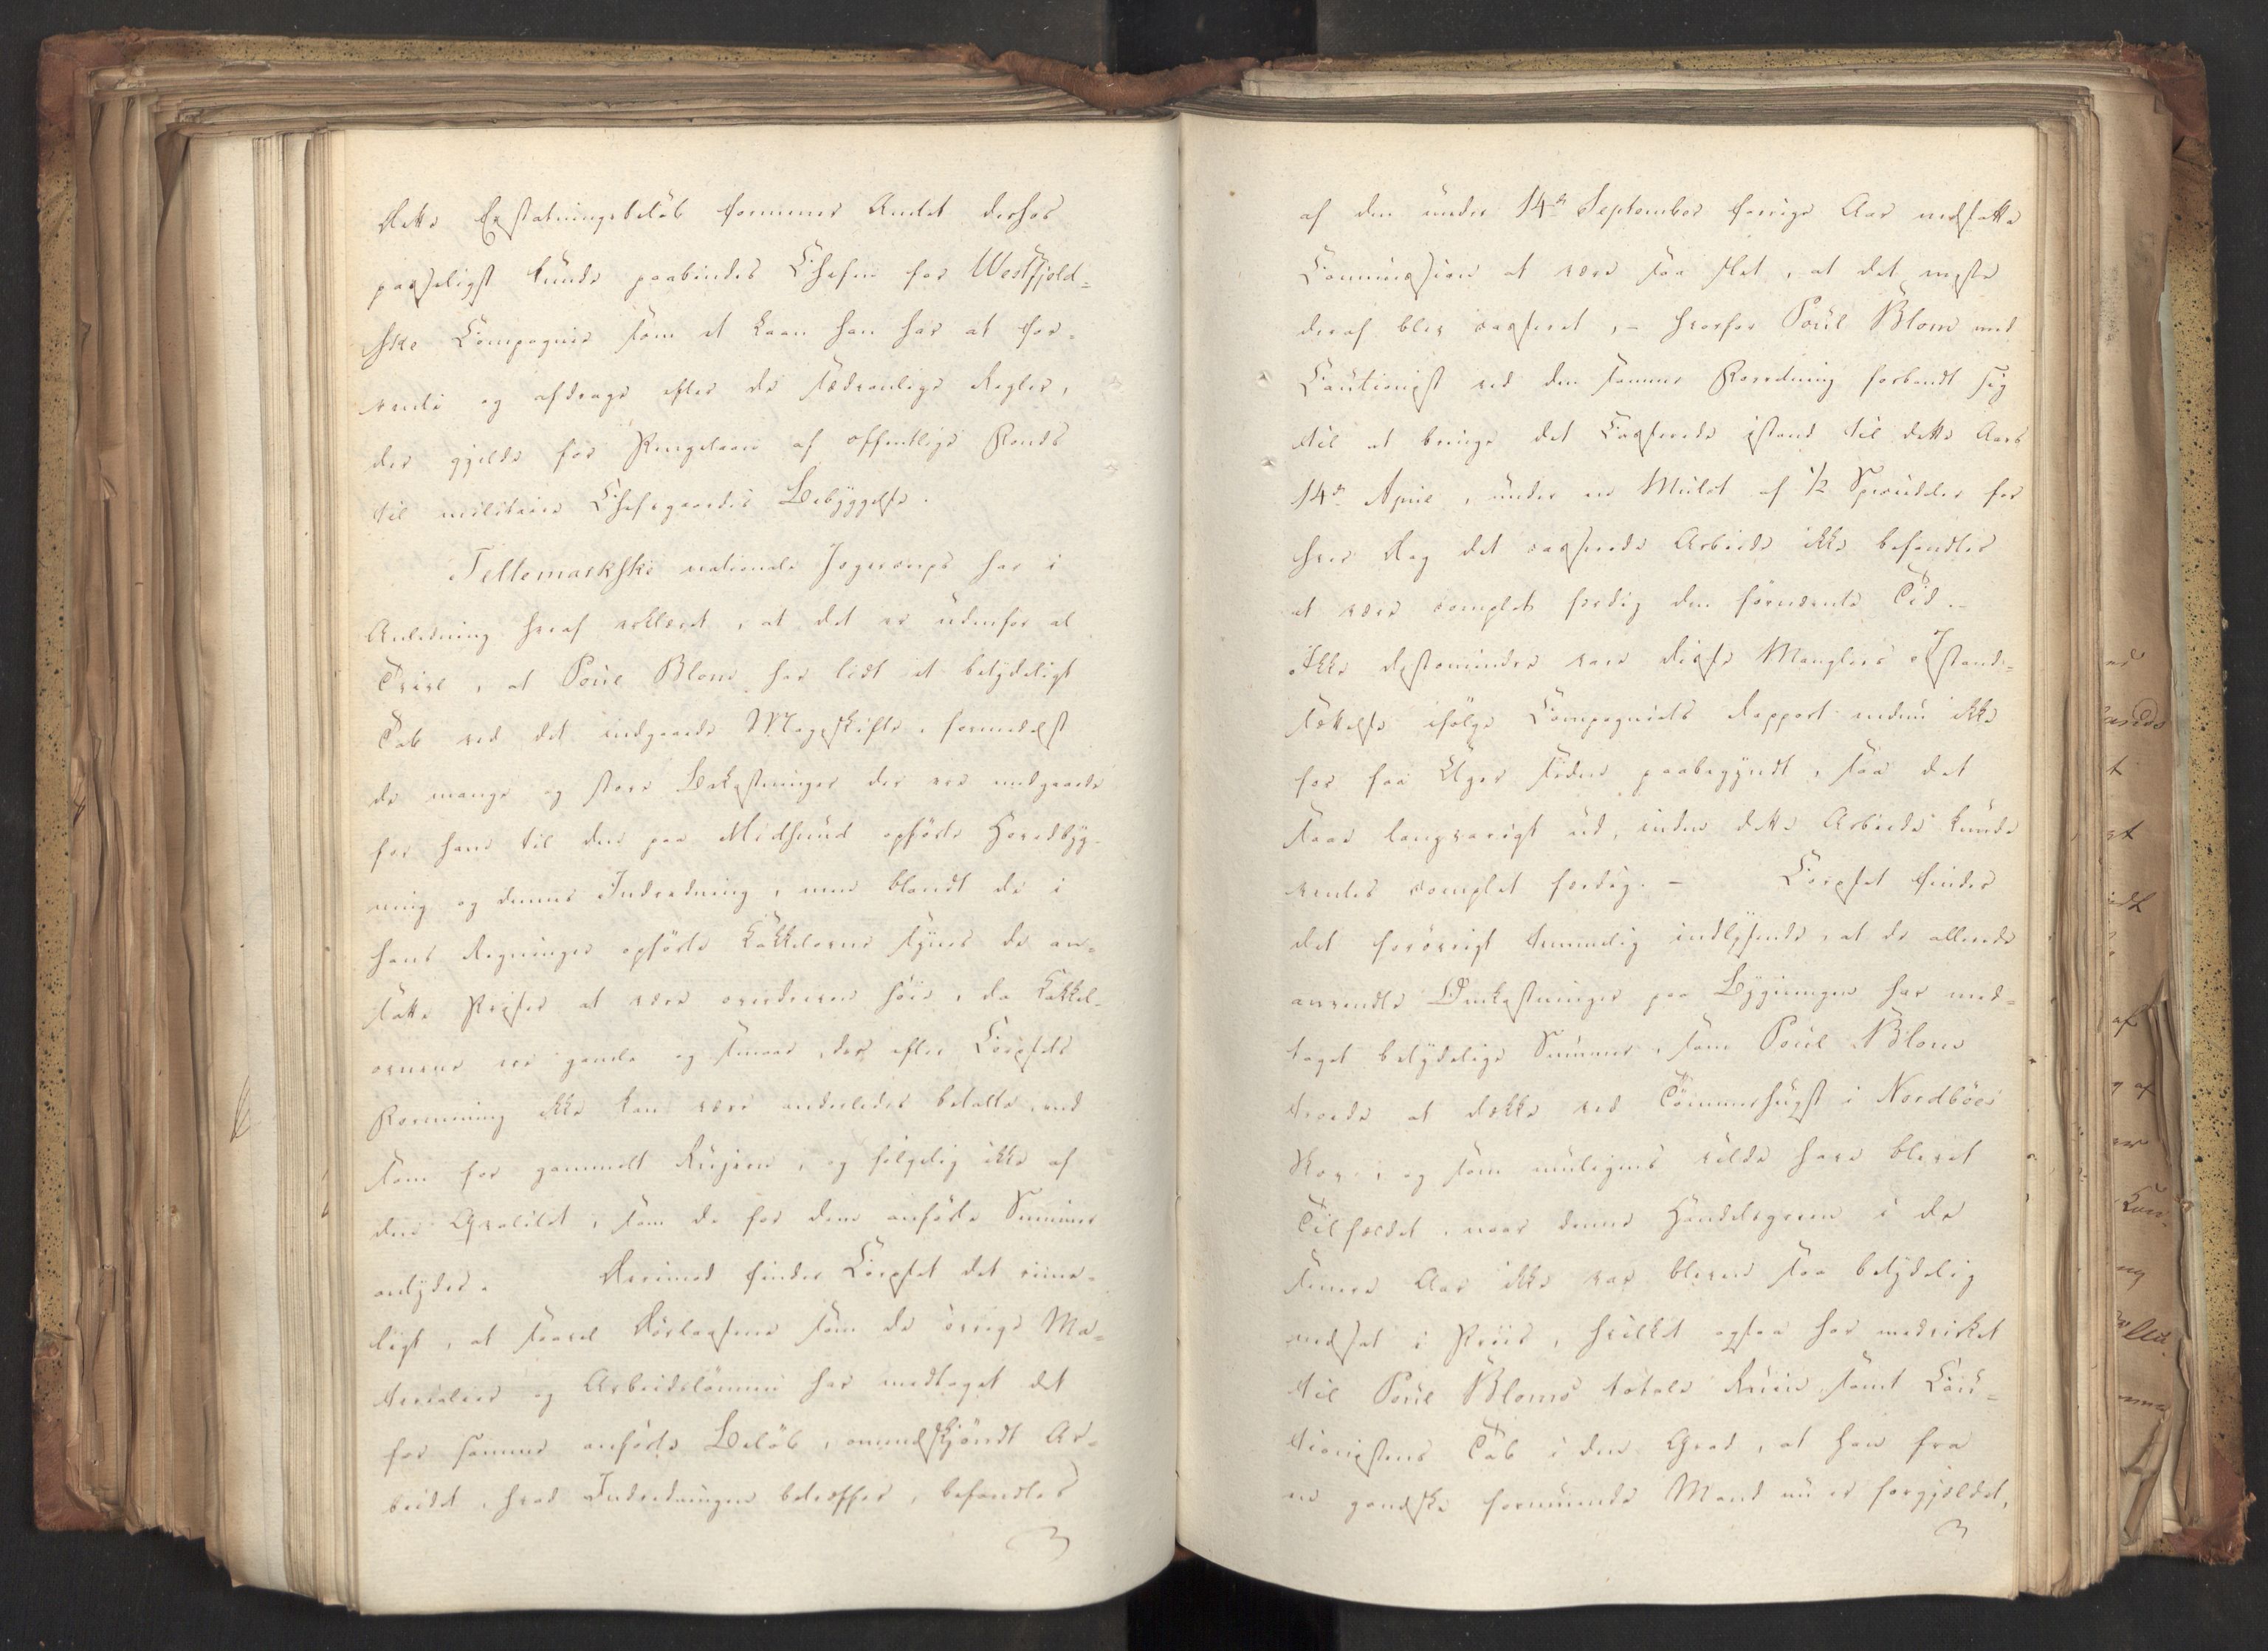 dette Erstatningsbelöb formener Amtet derhos
passeligst kunde paabindes Chefen for Westfjold-
ske Compagnie som et Laan han har at for-
rente og afdrage efter de sædvanlige Regler,
der gjelde for Pengelaan af offentlige Fonds
til militaire Chefsgaardes Bebyggelse.
Tellemarkske nationale Jægercorps har i
Anledning heraf erklæret, at det er udenfor al
Tvivl, at Poül Blom har lidt et betydeligt
Tab ved det indgaaede Mageskifte, formedelst
de mange og store Bekostninger der ere medgaaede
for ham til den paa Midsund opförte Hovedbyg-
ning og dennes Indredning, men blandt de i
hans Regninger opförte Kakkelovne synes de an-
satte Priser at være overdreven höie, da Kakkel-
ovnene ere gamle og smaae, der efter Corpsets
Formening ikke kan være anderledes betalte, end
som for gammelt Rujern, og fölgelig ikke af
den Qvalitet, som de for dem anförte Summer
antyder. Derimod finder Corpset det rime-
ligt, at saavel Dörlaasene som de övrige Ma-
terialier og Arbeidslönnen har medtaget det
for samme anförte Belöb, omendskjöndt Ar-
beidet, hvad Indredningen betræffer, befandtes
af den under 14de September forrige Aar nedsatte
Commission at være saa slet, at det meste
deraf blev casseret, – hvorfor Poül Blom med
Cautionist ved den samme Forretning forbandt sig
til at bringe det Casserede istand til dette Aars
14de April, under en Mulct af 1/2 Speciedaler for
hver Dag det casserede Arbeide ikke befandtes
at være complet færdig den fornævnte Tid. –
Ikke destomindre vare disse Manglers Istand-
sættelse ifölge Compagniets Rapport endnu ikke
for faa Uger siden paabegyndt, saa det
saae langvarigt ud, inden dette Arbeide kunde
ventes complet færdig. – Corpset finder
det forövrigt temmelig indlysende, at de allerede
anvendte Omkostninger paa Bygningen har med-
taget betydelige Summer, som Poül Blom
troede at dække ved Tömmerhugst i Nordböes
Skov, og som muligens vilde have blevet
Tilfældet, naar denne Handelsgreen i de
senere Aar ikke var bleven saa betydelig
nedsat i Priis, hvilket ogsaa har medvirket
til Poül Bloms totale Ruin samt Cau-
tionistens Tab i den Grad, at han fra
en gandske formuende Mand nu er forgjældet,